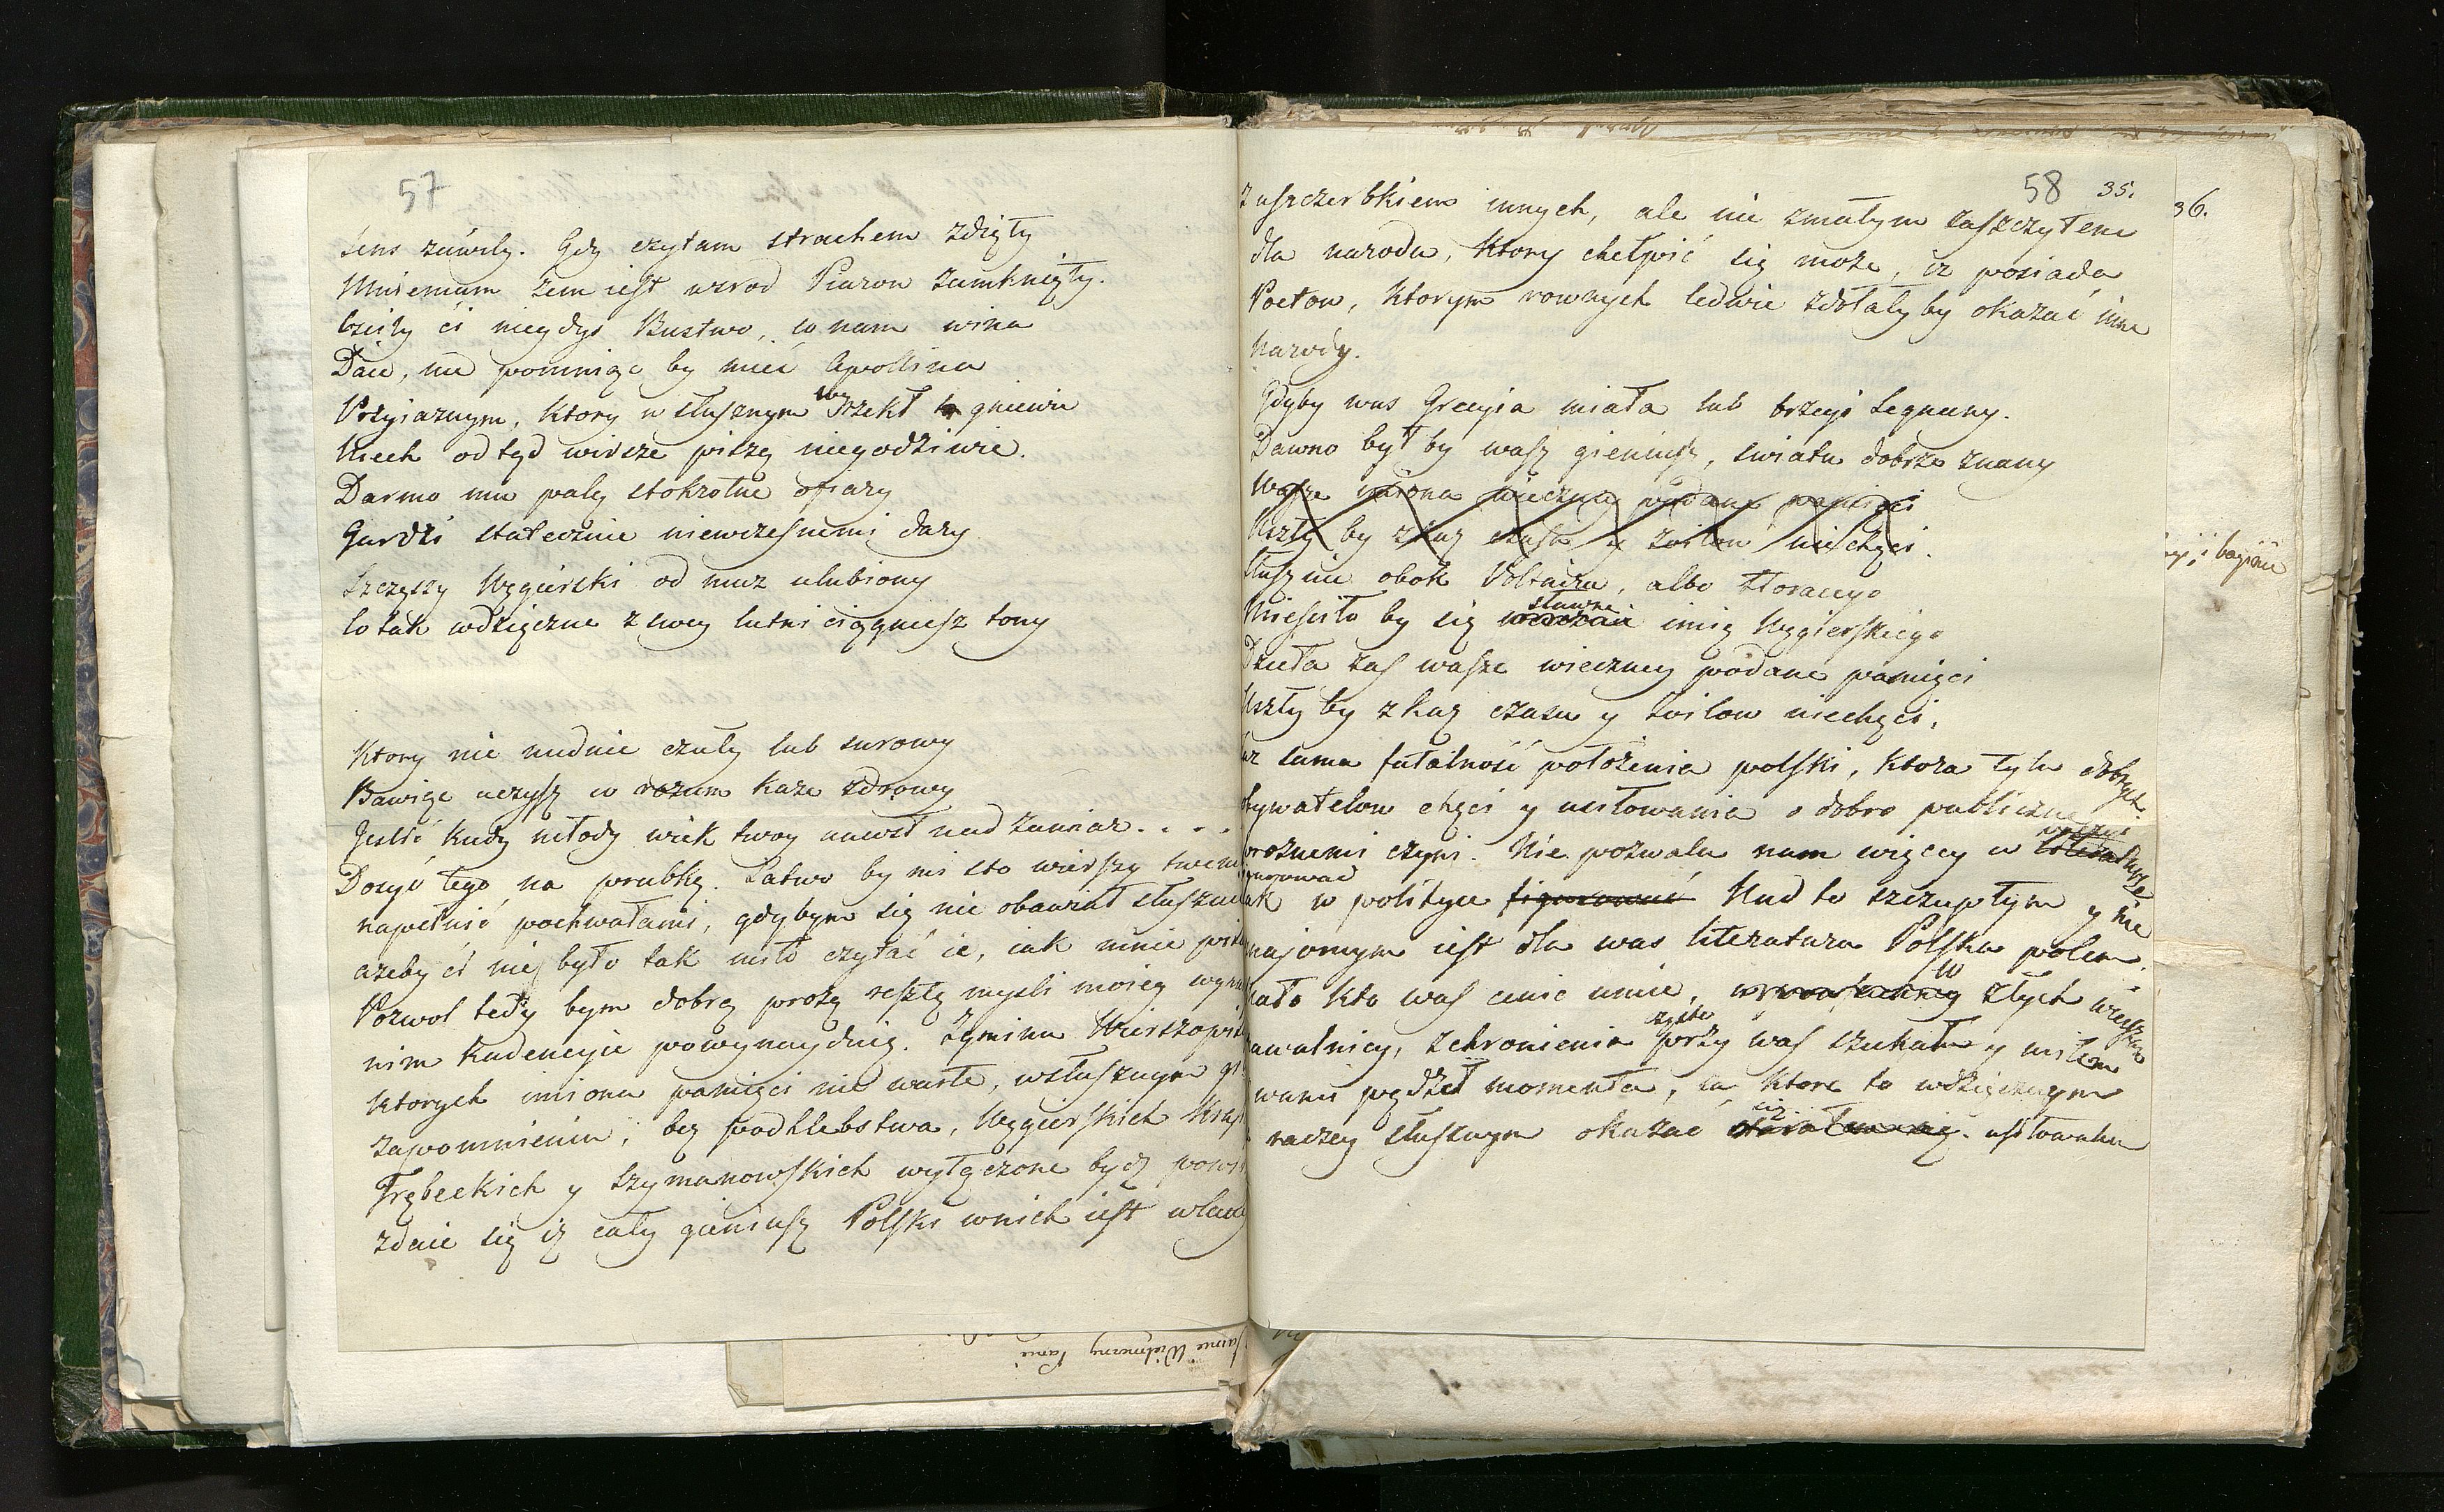 57
sens zawiły. Gdy czytam strachem zdięty
Mniemam żem iest wsrod Piarow zamknięty.
ci niegdys Bustwo, co nam wina
Daie, nie pomniąc by mieć Apollina
Przyiaznym, ktory w słusznym wyrzekł gniewie
Niech odtąd wiersze piszą niegodziwie.
Darmo mu palą stokrotne ofiary
Gardzi statecznie niewczesnemi dary
Szczęsny Węgierski od muz ulubiony
Co tak wdzięczne z swey lutni ciągniesz tony
Ktory nie nudnie czuły lub surowy
Bawiąc uczysz iak rozum każe zdrowy
Jeslić kiedy młody wiek twoy uniosł nad zamiar. . . .
Dosyć tego na probkę. Łatwo by mi sto wierszy twemi
napełnić pochwałami, gdybym się nie obawiał słusznie
ażeby ci nie było tak miło czytać ie, iak mnie pis
Pozwol tedy bym dobrą prozą resztę mysli moiey wyra
nim kadencyie powynayduię. Zgminu Wierszopis
ktorych imiona pamięci nie warte, w słusznym
zapomnieniu, bez podhlebstwa, Węgierskich Kras
Trębeckich y Szymanowskich wyłączone bydź pow
zdaie się iż cały gieniusz Polski w nich iest wlan
58 35.
36.
z uszczerbkiem innych, ale nie z małym zaszczytem
dla narodu, ktory chełpić się może, iż posiada
Poetow, ktorym rownych ledwie zdołały by okazać inne
narody.
Gdyby was Grecyia miała lub brzegi Seqwany.
Dawno był by wasz gieniusz, swiatu dobrze znany
Wasze imiona wieczney podane pamięci
Uszły by z kaz czasu y Zoilow niechęci.
Słusznie obok Voltaira, albo Horacego
Miesciło by się sławne imię Węgierskiego
Dzieła zas wasze wieczney podane pamięci
Uszły by z kaz czasu y Zoilow niechęci.
sama fatalność położenia polski, ktora tylu dobrych
bywatelow chęci y usiłowania o dobro publiczne
prożnemi czyni. Nie pozwala nam więcey w literaturze
iak w polityce figurować Nad to szczupłym y nie
znajomym iest dla was literatura Polska polem.
Mało kto was cenić umie, w złych wierszow
nawalnicy, schronienia przy was szukałem y miłem
wanie pędził momenta, za ktore to wdzięcznym
raczey słusznym okazać się usiłowałem